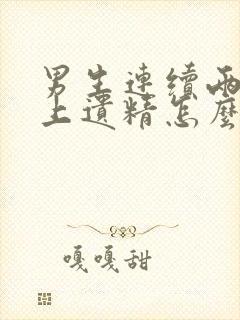 男生連續兩
上遺精怎麼
嘎嘎甜